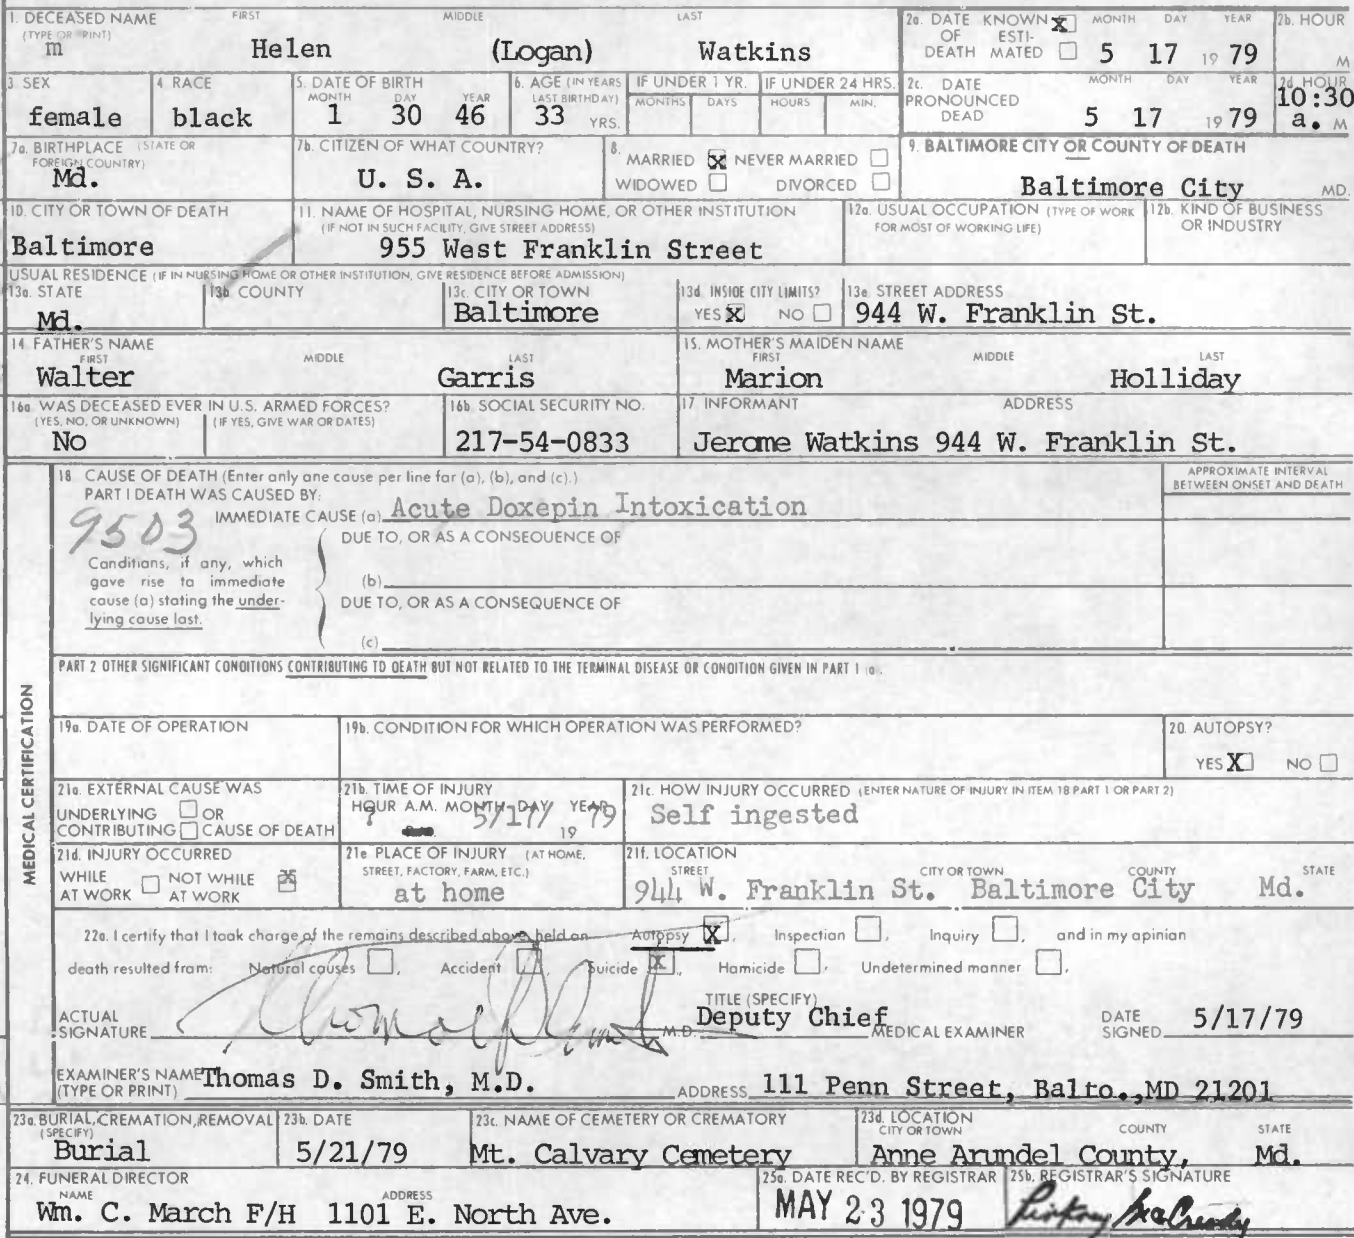 1. DECEASED NAME FIRST MIDDLE LAST
(TYPE OR PRINT)
m Helen (Logan) Watkins
2a. DATE KNOWN X MONTH DAY YEAR
OF ESTI-
DEATH MATED 5 17 19 79
2b. HOUR
M
3. SEX
female
4. RACE
black
5. DATE OF BIRTH
MONTH DAY YEAR
1 30 46
6. AGE (IN YEARS
LAST BIRTHDAY)
33 YRS.
IF UNDER 1 YR.
MONTHS DAYS
IF UNDER 24 HRS.
HOURS MIN.
2c. DATE MONTH DAY YEAR
PRONOUNCED
DEAD 5 17 19 79
2d. HOUR
10:30
a. M
7a. BIRTHPLACE (STATE OR
FOREIGN COUNTRY)
Md.
7b. CITIZEN OF WHAT COUNTRY?
U. S. A.
8.
MARRIED X NEVER MARRIED
WIDOWED DIVORCED
9. BALTIMORE CITY OR COUNTY OF DEATH
Baltimore City MD.
10. CITY OR TOWN OF DEATH
Baltimore
11. NAME OF HOSPITAL, NURSING HOME, OR OTHER INSTITUTION
(IF NOT IN SUCH FACILITY, GIVE STREET ADDRESS)
955 West Franklin Street
12a. USUAL OCCUPATION (TYPE OF WORK
FOR MOST OF WORKING LIFE)
12b. KIND OF BUSINESS
OR INDUSTRY
USUAL RESIDENCE (IF IN NURSING HOME OR OTHER INSTITUTION, GIVE RESIDENCE BEFORE ADMISSION)
13a. STATE
Md.
13b. COUNTY
13c. CITY OR TOWN
Baltimore
13d. INSIDE CITY LIMITS?
YES X NO
13e. STREET ADDRESS
944 W. Franklin St.
14. FATHER'S NAME
FIRST MIDDLE LAST
Walter Garris
15. MOTHER'S MAIDEN NAME
FIRST MIDDLE LAST
Marion Holliday
16a. WAS DECEASED EVER IN U.S. ARMED FORCES?
(YES, NO, OR UNKNOWN) (IF YES, GIVE WAR OR DATES)
No
16b. SOCIAL SECURITY NO.
217-54-0833
17. INFORMANT ADDRESS
Jerome Watkins 944 W. Franklin St.
MEDICAL CERTIFICATION
18. CAUSE OF DEATH (Enter only one cause per line for (a), (b), and (c).)
PART I DEATH WAS CAUSED BY:
APPROXIMATE INTERVAL
BETWEEN ONSET AND DEATH
9503
IMMEDIATE CAUSE (a) Acute Doxepin Intoxication
DUE TO, OR AS A CONSEQUENCE OF
Conditions, if any, which
gave rise to immediate
cause (a) stating the under-
lying cause last.
(b)
DUE TO, OR AS A CONSEQUENCE OF
(c)
PART 2 OTHER SIGNIFICANT CONDITIONS CONTRIBUTING TO DEATH BUT NOT RELATED TO THE TERMINAL DISEASE OR CONDITION GIVEN IN PART 1 (a).
19a. DATE OF OPERATION
19b. CONDITION FOR WHICH OPERATION WAS PERFORMED?
20. AUTOPSY?
YES X NO
21a. EXTERNAL CAUSE WAS
UNDERLYING OR
CONTRIBUTING CAUSE OF DEATH
21b. TIME OF INJURY
HOUR A.M. MONTH DAY YEAR
? 5/17/ 19 79
21c. HOW INJURY OCCURRED (ENTER NATURE OF INJURY IN ITEM 18 PART 1 OR PART 2)
Self ingested
21d. INJURY OCCURRED
WHILE NOT WHILE X
AT WORK AT WORK
21e. PLACE OF INJURY (AT HOME,
STREET, FACTORY, FARM, ETC.)
at home
21f. LOCATION
STREET CITY OR TOWN COUNTY STATE
944 W. Franklin St. Baltimore City Md.
22a. I certify that I took charge of the remains described above, held an Autopsy X, Inspection , Inquiry , and in my opinion
death resulted from: Natural causes , Accident , Suicide X, Homicide , Undetermined manner ,
ACTUAL
SIGNATURE Thomas D. Smith M.D.
TITLE (SPECIFY)
Deputy Chief MEDICAL EXAMINER
DATE
SIGNED 5/17/79
EXAMINER'S NAME
(TYPE OR PRINT) Thomas D. Smith, M.D.
ADDRESS 111 Penn Street, Balto.,MD 21201
23a. BURIAL, CREMATION, REMOVAL
(SPECIFY)
Burial
23b. DATE
5/21/79
23c. NAME OF CEMETERY OR CREMATORY
Mt. Calvary Cemetery
23d. LOCATION
CITY OR TOWN COUNTY STATE
Anne Arundel County, Md.
24. FUNERAL DIRECTOR
NAME ADDRESS
Wm. C. March F/H 1101 E. North Ave.
25a. DATE REC'D. BY REGISTRAR
MAY 23 1979
25b. REGISTRAR'S SIGNATURE